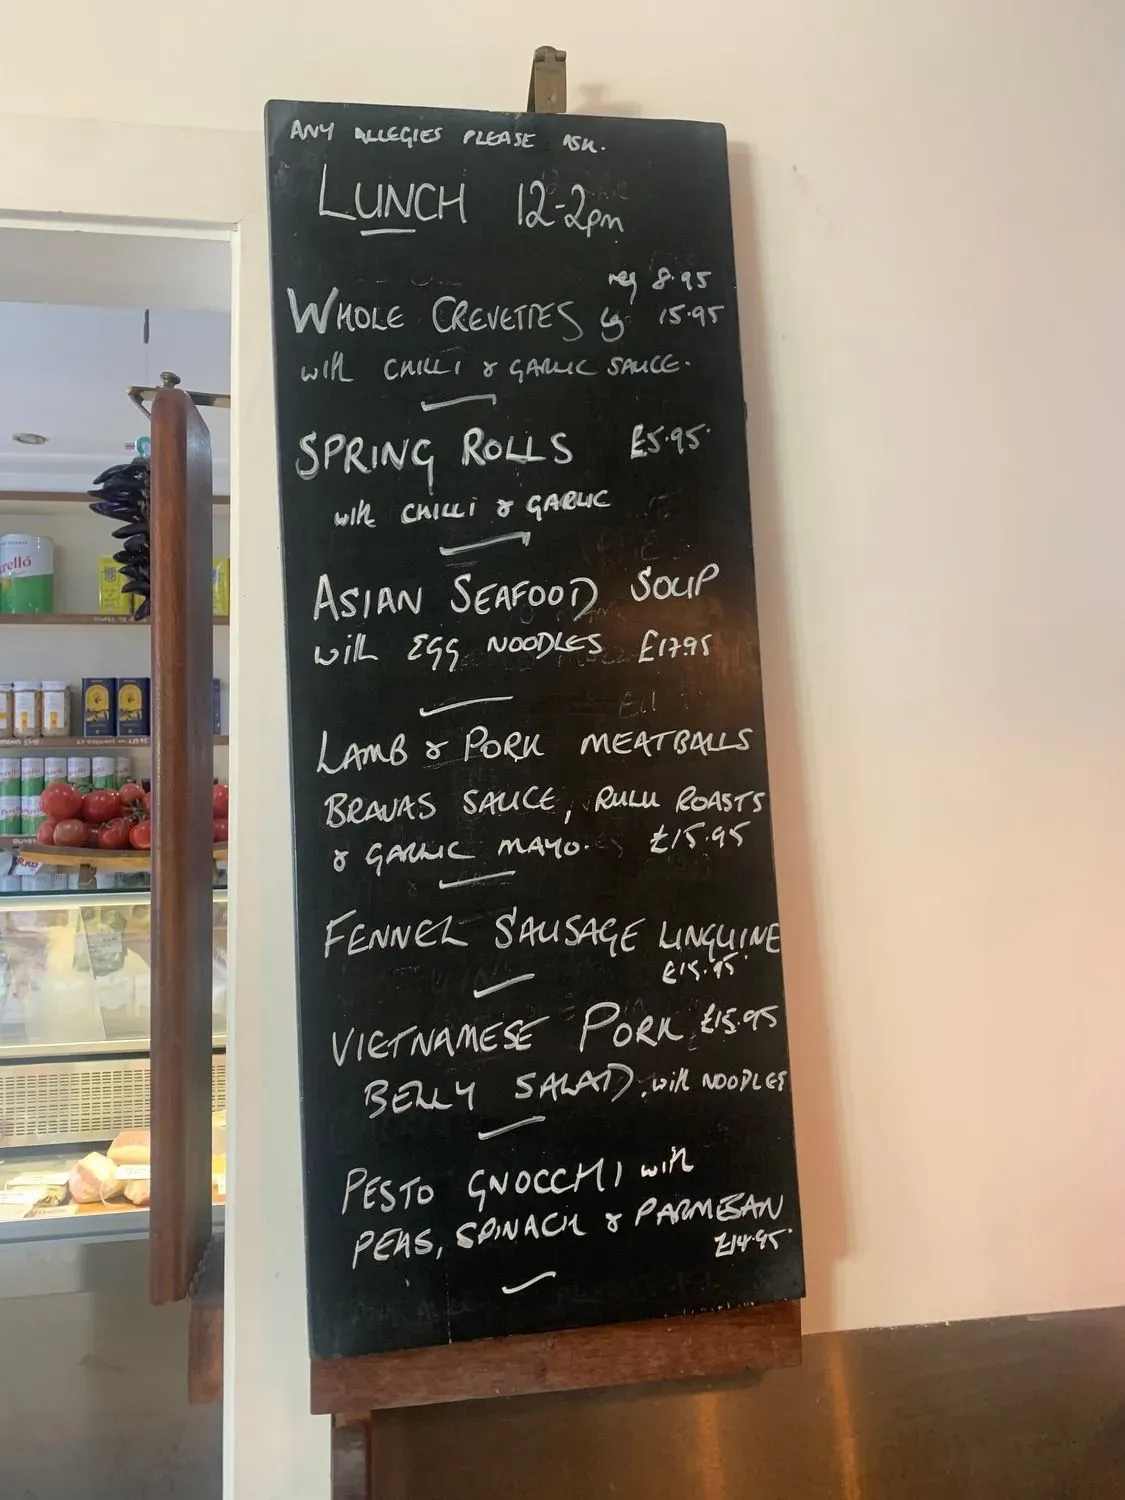 ANY ALLEGIES PLEASE ASK.
LUNCH 12-2pm
reg 8.95
WHOLE CREVETTES lg 15.95
with CHILLI & GARLIC SAUCE.
SPRING ROLLS £5.95
with CHILLI & GARLIC
ASIAN SEAFOOD SOUP
with EGG NOODLES £17.95
LAMB & PORK MEATBALLS
BRAVAS SAUCE, RULU ROASTS
& GARLIC MAYO. £15.95
FENNEL SAUSAGE LINGUINE
£15.95
VIETNAMESE PORK £15.95
BELLY SALAD. with NOODLES
PESTO GNOCCHI with
PEAS, SPINACH & PARMESAN
£14.95